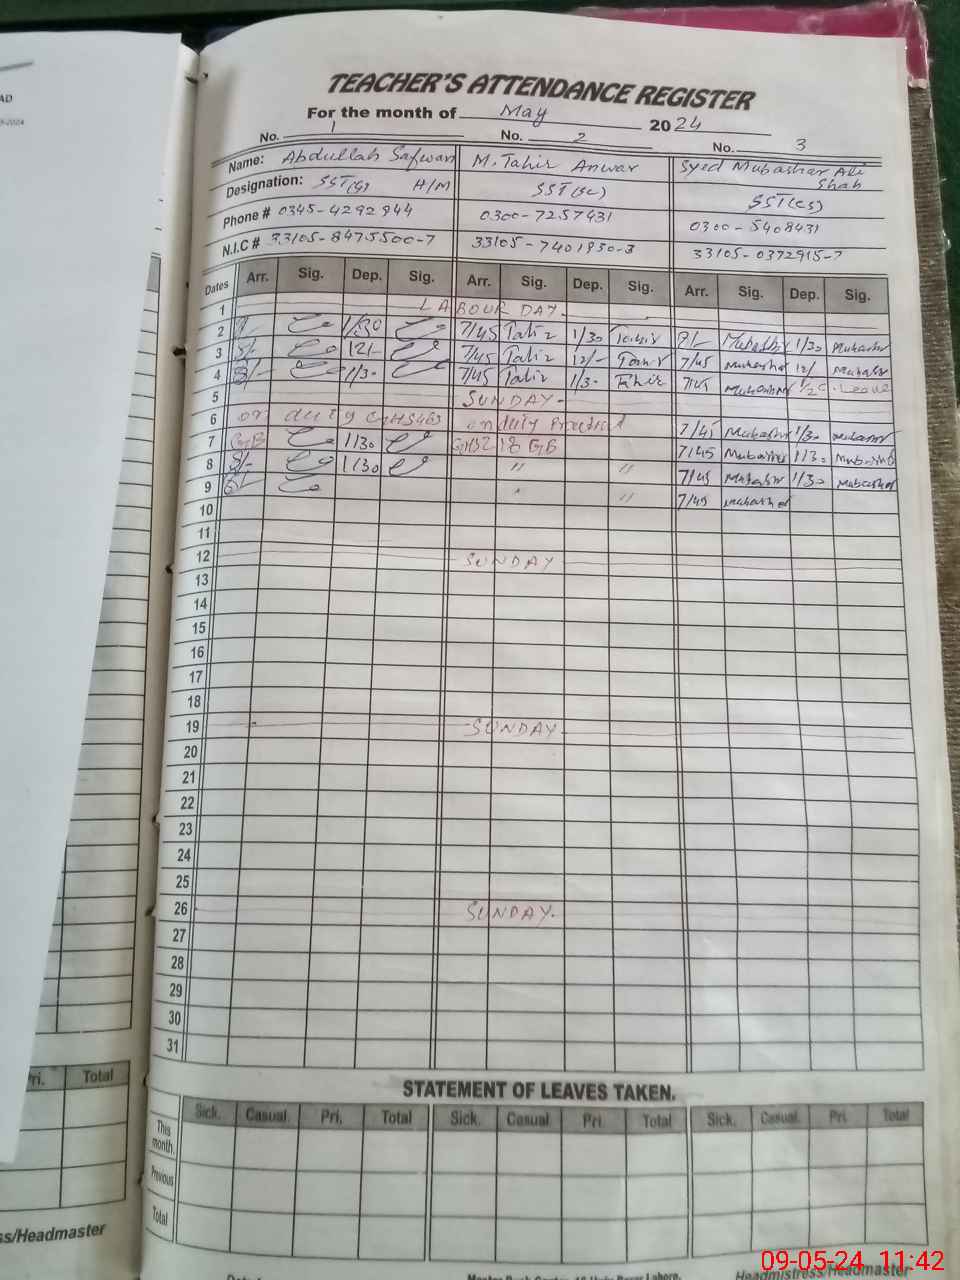 TEACHER'S ATTENDANCE REGISTER
For the month of May 2024
No. 1 No. 2 No. 3
Name: Abdullah Safwan M. Tahir Anwar Syed Mubashar Ali Shah
Designation: SST(G) H/M SST(Sc) SST(CS)
Phone # 0345-4292944 0300-7257431 0300-5408431
N.I.C # 33105-8475500-7 33105-7401950-3 33105-0372915-7
Dates Arr. Sig. Dep. Sig. Arr. Sig. Dep. Sig. Arr. Sig. Dep. Sig.
1 LABOUR DAY.
2 1/30 7/45 Tahir 1/30 Tahir Mubashar 1/30 Mubashar
3 8/- 12/- 7/45 Tahir 12/- Tahir 7/45 Mubashar 12/ Mubashar
4 8/- 1/30 7/45 Tahir 1/30 Tahir 7/45 Mubashar 1/2 C. Leave
5 SUNDAY-
6 on duty GHS 463 on duty Practical 7/45 Mubashar 1/30 Mubashar
7 GB 1/30 GHS 218 GB 7/45 Mubashar 1/30 Mubashar
8 8/- 1/30 " " 7/45 Mubashar 1/30 Mubashar
9 8/- " 7/45 Mubashar
10
11
12 SUNDAY
13
14
15
16
17
18
19 SUNDAY-
20
21
22
23
24
25
26 SUNDAY-
27
28
29
30
31
STATEMENT OF LEAVES TAKEN.
Sick. Casual. Pri. Total Sick. Casual Pri. Total Sick. Casual. Pri Total
This month.
Previous
Total
Pri. Total
ss/Headmaster
Headmistress/Headmaster
09-05-24 11:42